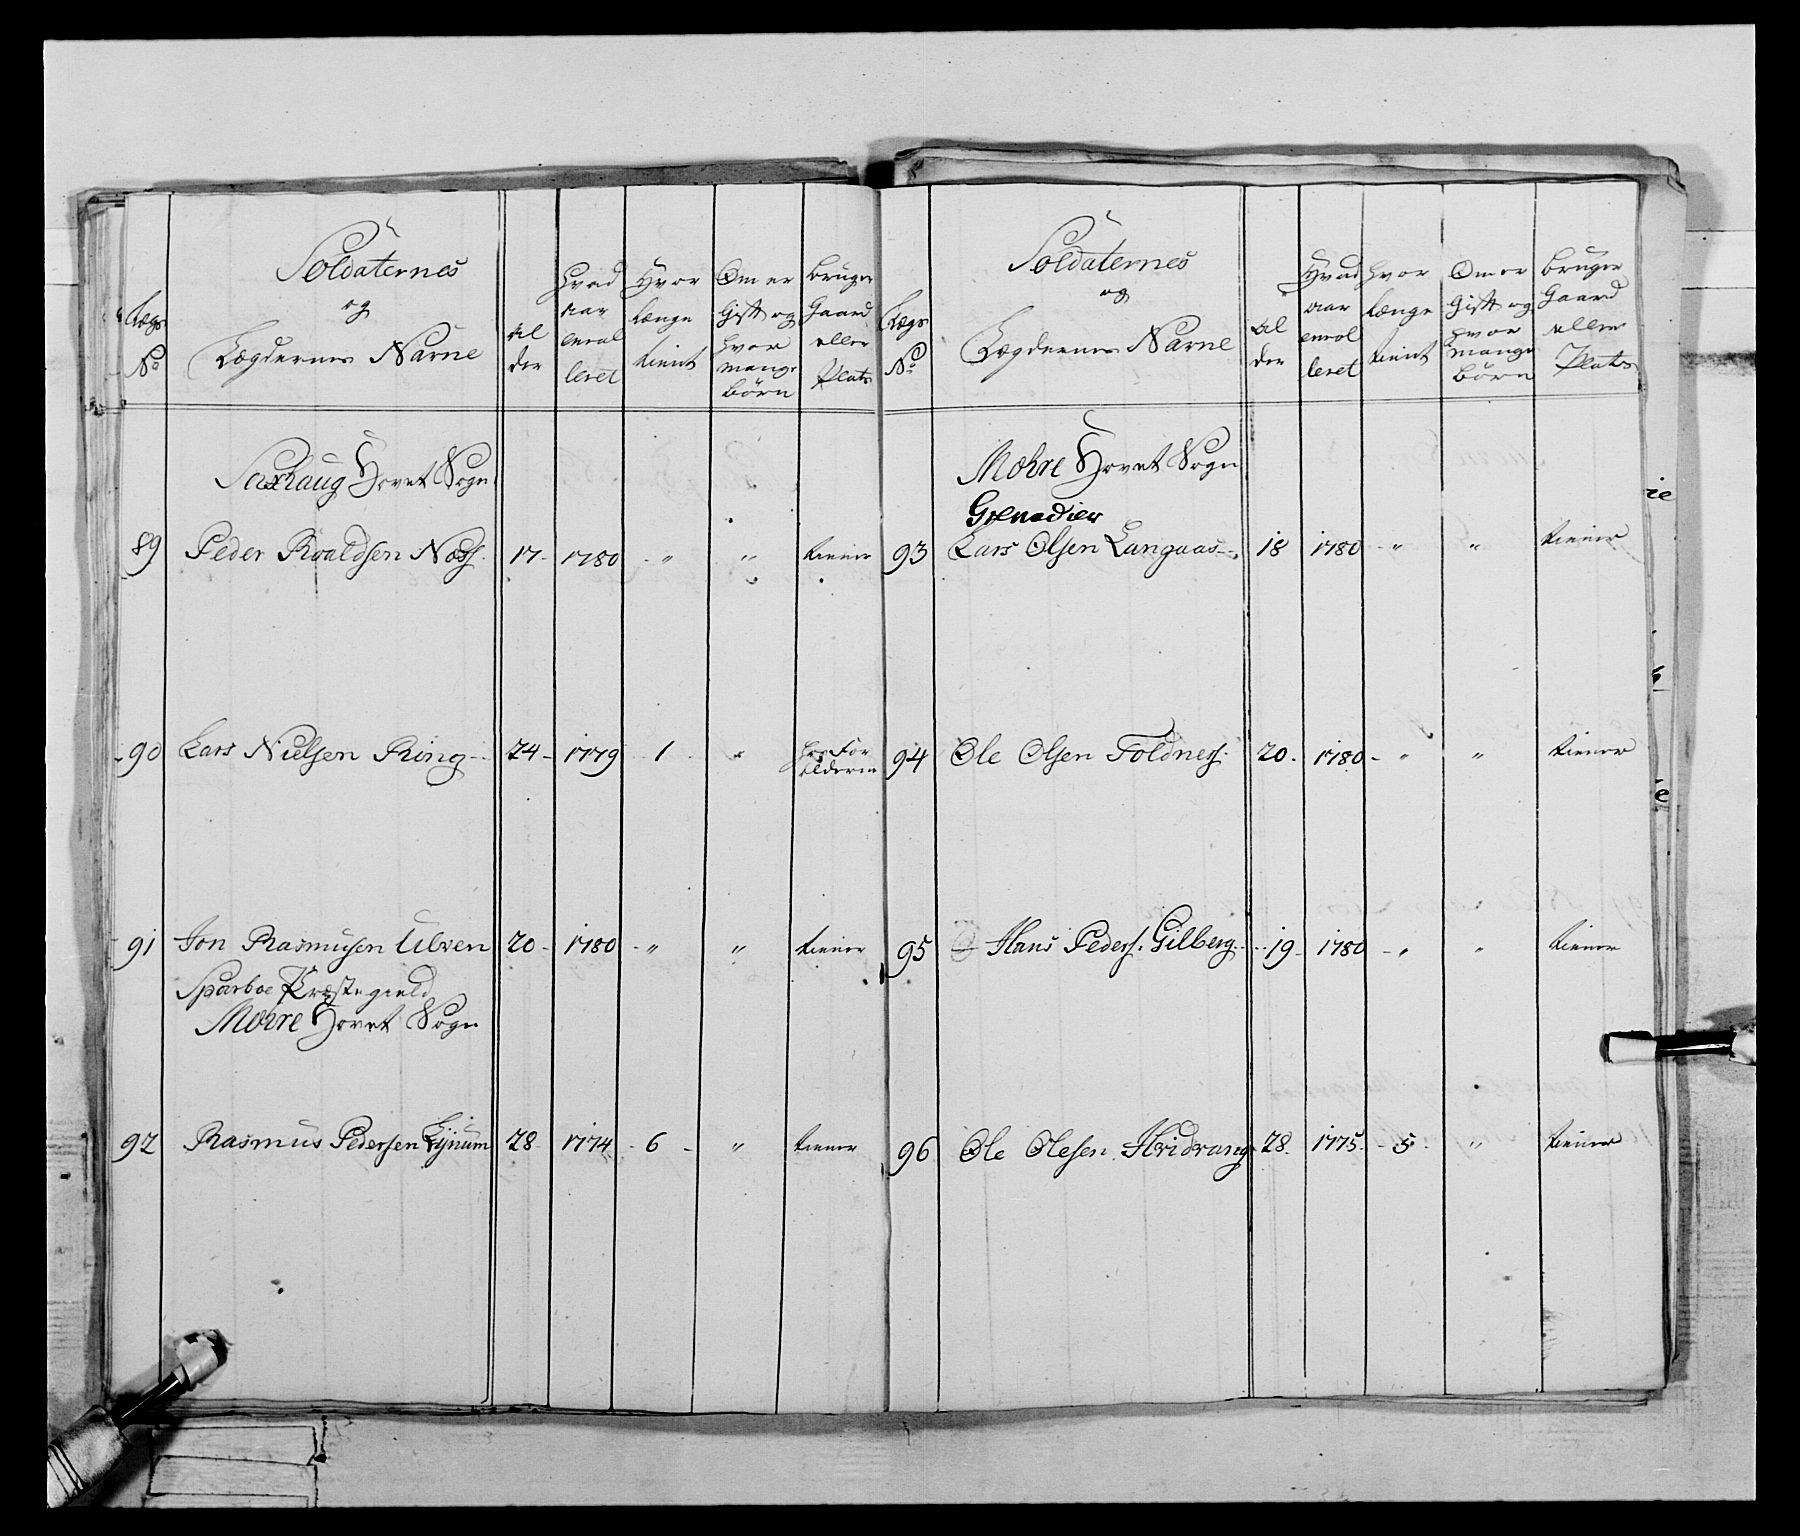 Lægs No
Soldaternes
og
Lægdernes Navne
Al der
Hvad aar enrolleret
Hvor længe tient
Om er Gift og hvor mange børn
Bruger Gaard eller Plads
Saxhaug Hovet Sogn
89 Peder Roaldsen Næss 17 - 1780 - " " tiener
90 Lars Nielsen Ring - 24 - 1779 1 " hos For ældrene
91 Jon Rasmusen Ulven 20 - 1780 - " " tiener
Sparboe Præstegield
Mohre Hovet Sogn
92 Rasmus Pedersen Lÿnum 28 1774 - 6 - " tiener
Lægs No
Soldaternes
og
Lægdernes Navne
Al der
Hvad aar enrolleret
Hvor længe tient
Om er Gift og hvor mange børn
Bruger Gaard eller Plads
Mohre Hovet Sogn
Grenadier
93 Lars Olsen Langaas - 18 1780 - " " tiener
94 Ole Olsen Foldness. 20. 1780 - " " tiener
95 Hans Peders. Gilberg - 19 - 1780 - " " tiener
96 Ole Olesen Hridrang 28. 1775. - 5 " tiener